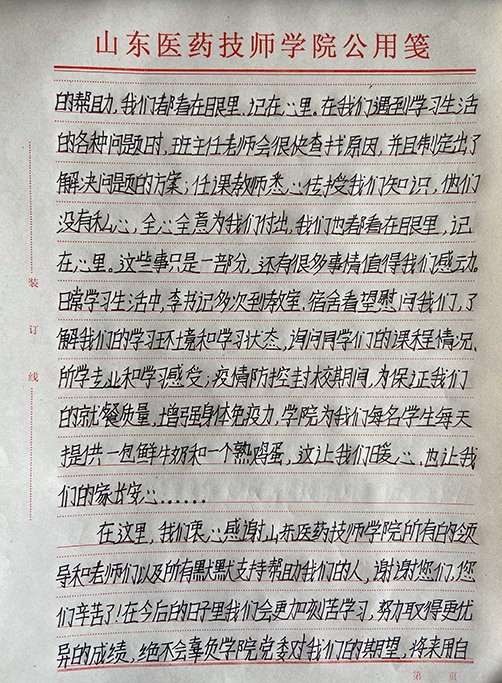 山东医药技师学院公用笺
的帮助，我们都看在眼里、记在心里。在我们遇到学习生活
的各种问题时，班主任老师会很快查找原因，并且制定出了
解决问题的方案；任课教师悉心传授我们知识，他们
没有私心，全心全意为我们付出，我们也都看在眼里，记
在心里。这些事只是一部分，还有很多事情值得我们感动。
日常学习生活中，李书记多次到教室、宿舍看望慰问我们，了
解我们的学习环境和学习状态，询问同学们的课程情况、
所学专业和学习感受；疫情防控封校期间，为保证我们
的就餐质量，增强身体免疫力，学院为我们每名学生每天
提供一包鲜牛奶和一个熟鸡蛋，这让我们暖心，也让我
们的家长安心……
在这里，我们衷心感谢山东医药技师学院所有的领
导和老师们以及所有默默支持帮助我们的人，谢谢您们，您
们辛苦了！在今后的日子里我们会更加刻苦学习，努力取得更优
异的成绩，绝不会辜负学院党委对我们的期望，将来用自
装
订
线
第 页